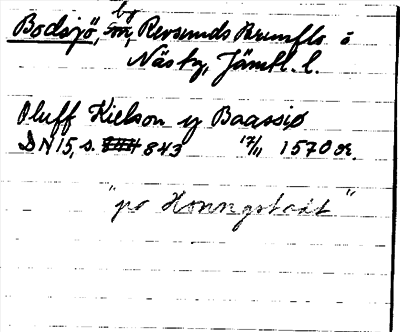 by
Bodsjö, sn, Revsunds Brunflo o
Näs tg, Jämtl. l.
Oluff Kielson y Baassiø
DN 15, s. 843 17/11 1570 or.
"po Honngstadt"